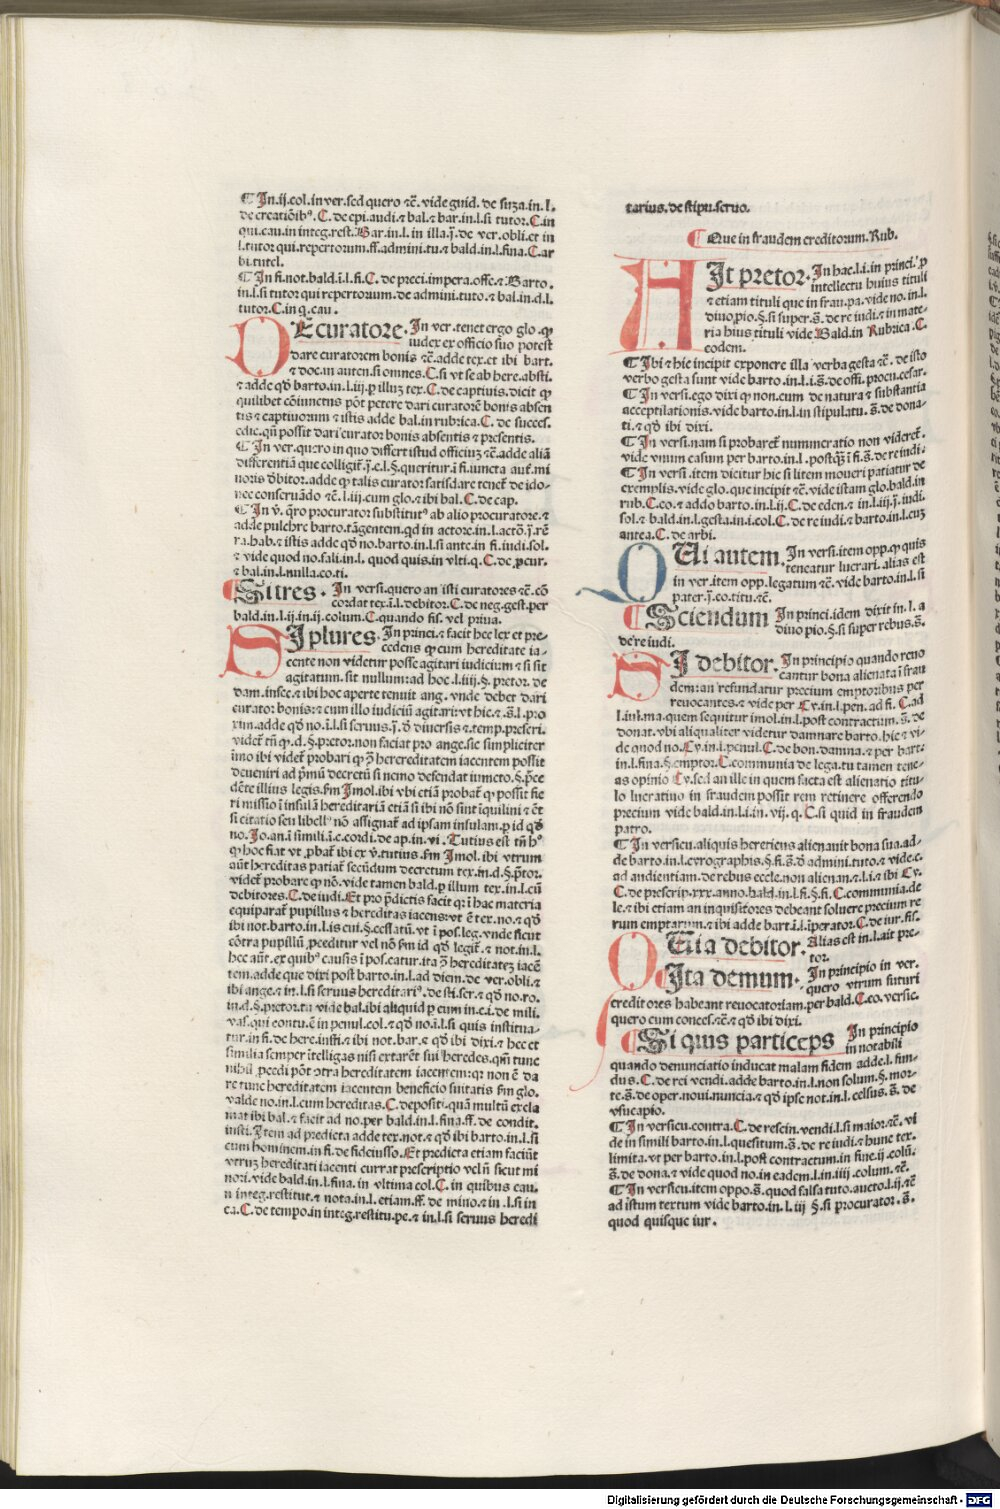 ¶ In.ij.col.in ver.sed quero ⁊c̄.vide guid. de suza.in.l.
de creatiōib⁹.C.de epi.audi.⁊ bal.⁊ bar.in.l.si tutor.C.in
qui.cau.in integ.rest.Bar.in.l.in illa.ij.de ver.obli.et in
l.tutor qui.repertorum.ff.admini.tu.⁊ bald.in.l.fina.C.ar
bi.tutel.
¶ In fi.not.bald.i.l.fi.C.de preci.impera.offe.⁊ Barto.
in.l.si tutor qui repertorum.de admini.tuto.⁊ bal.in d.l.
tutor.C.in q.cau.
DEcuratore. In ver.tenet ergo glo.ꝙ
iudex ex officio suo potest
dare curatorem bonis ⁊c̄.adde tex.et ibi bart.
⁊ doc.in auten.si omnes.C.si vt se ab here.absti.
⁊ adde qđ barto.in.l.iij.ꝑ illuꝫ tex.C.de captiuis.dicit ꝙ
quilibet cōiunctus pōt petere dari curatorē bonis absen
tis ⁊ captiuorum ⁊ istis adde bal.in rubrica.C.de succes.
edic.qn̄ possit dari curator bonis absentis ⁊ presentis.
¶ In ver.quero in quo differt istud officiuꝫ ⁊c̄.adde aliā
differentiā que colligit̄.
noris đbitor.adde ꝙ talis curator satisdare tenet̄ de ido-
nee conseruādo ⁊c̄.l.iij.cum glo.⁊ ibi bal.C.de cap.
¶ In v̄.q̄ro procurator substitut⁹ ab alio procuratore.⁊
adde pulchre barto.tāgentem.qđ in actore.in.l.
ra.hab.⁊ istis adde qđ no.barto.in.l.si ante.in fi.iudi.sol.
⁊ vide quod no.fali.in.l. quod quis.in vlti.q.C.de ꝓcur.
⁊ bal.in.l.nulla.co.ti.
¶ Si tres. In versi.quero an isti curatores ⁊c̄.cō
cordat tex.i.l.debitor.C.de neg.gest.per
bald.in.l.ij.in.ij.colum.C.quando fis. vel priua.
SI plures. In princi.⁊ facit hec lex et pre-
cedens ꝙ cum hereditate ia-
cente non videtur posse agitari iudicium ⁊ si sit
agitatum.sit nullum:ad hoc.l.iiij.§.pretor. de
dam.infec.⁊ ibi hoc aperte tenuit ang. vnde debet dari
curator bonis:⁊ cum illo iudiciū agitari:vt hic ⁊.s̄.l.pro
xim.adde qđ no.i.l.si seruus.
videt̄ tn̄ ꝙ.d.§.pretor.non faciat pro ange.sic simpliciter
imo ibi videt̄ probari ꝙ
deueniri ad p̄mū decretū si nemo defendat
dēte illius legis.fm Imol.ibi vbi etiā probat̄ ꝙ possit fie
ri missio i insulā hereditariā etiā si ibi nō sint iquilini ⁊ ēt
si citatio seu libell⁹ nō assignat̄ ad ipsam insulam.
no.Jo.an.i simili.
ꝙ hoc fiat vt ꝓbat̄ ibi ex v̄.tutius.fm Imol.ibi vtrum
aūt hereditas patiat̄ secūdum decretum tex.in.d.§.p̄tor.
videt̄ probare ꝙ nō.vide tamen bald.ꝑ illum tex.in.l.cū
debitores.C.de iudi.Et pro p̄dictis facit q:i hac materia
equiparat̄ pupillus ⁊ hereditas iacens:vt ē tex.no.⁊ qđ
ibi not.barto.in.l.is cui.§.
cōtra pupillū
hec aūt.ex quib⁹ causis
tem.adde que dixi post barto.in.l.ad diem.de ver.obli.⁊
ibi ange.⁊ in.l.si seruus hereditari⁹.de sti.ser.⁊ qđ no.ro.
in.d.§.pretor.tu vide bal.ibi aliquid
vas.qui contu.ē in penul.col.⁊ qđ no.i.l.si quis institua-
tur.in fi.de here.insti.⁊ ibi not.bar.⁊ qđ ibi dixi.⁊ hec et
similia semper itelligas nisi extarēt sui heredes.qm̄ tunc
nihil ꝓcedi pōt ꝯtra hereditatem iacentem:q: non ē da
re tunc hereditatem iacentem beneficio suitatis fm glo.
valde no.in.l.cum hereditas.C.depositi.quā multū excla
mat ibi bal.⁊ facit ad no.per bald.in.l.fina.ff.de condit.
insti.Item ad predicta adde tex.not.⁊ qđ ibi barto.in.l.si
cum hominem.in fi.de fideiusso.Et predicta etiam faciūt
vtruꝫ hereditati iacenti currat prescriptio vel n̄ sicut mi
nori.vide bald.in.l.fina.in vltima col.C.in quibus cau.
n integ.restitut.⁊ nota.in.l.etiam.ff.de mino.⁊ in.l.si in
ca.C.de tempo.in integ.restitu.pe.⁊ in.l.si seruus heredi
tarius.de stipu.seruo.
¶ Que in fraudem creditorum.Rub.
AIt pretor. In hac.l.i.in princi.ꝓ
intellectu huius tituli
⁊ etiam tituli que in frau.pa.vide no.in.l.
diuo pio.§.si super.s̄.de re iudi.⁊ in mate-
ria huius tituli vide Bald.in Rubrica.C.
eodem.
¶ Ibi ⁊ hic incipit exponere illa verba gesta ⁊c̄.de isto
verbo gesta sunt vide barto.in.l.i.s̄.de offi.procu.cesar.
¶ In versi.ego dixi ꝙ non.cum de natura ⁊ substantia
acceptilationis.vide barto.in.l.in stipulatu.s̄.de dona-
ti.⁊ qđ ibi dixi.
¶ In versi.nam si probaret̄ numneratio non videret̄.
vide vnum casum per barto.in.l.postꝙ̄ i fi.s̄.de re iudi.
¶ In versi.item dicitur hic si litem moueri patiatur de
exemplis.vide glo.que incipit ⁊c̄.vide istam glo.bald.in
rub.C.eo.⁊ addo barto.in.l.ij.C.de eden.⁊ in.l.iij.
sol.⁊ bald.in.l.gesta.in.i.col.C.de re iudi.⁊ barto.in.l.cuꝫ
antea.C.de arbi.
QUi autem. In versi.item opp.ꝙ quis
teneatur lucrari. alias est
in ver.item opp.legatum ⁊c̄.vide barto.in.l.si
pater.
¶ Sciendum In princi.idem dixit in.l. a
diuo pio.§.si super rebus.s̄.
de re iudi.
SI debitor. In principio quando reuo
cantur bona alienata i frau
dem:an refundatur precium emptoribus per
reuocantes.⁊ vide per Cy.in.l.pen.ad fi.C.ad
l.iul.ma.quem sequitur imol.in.l.post contractum.s̄.de
donat.vbi aliqualiter videtur damnare barto.hic ⁊ vi-
de quod no.Cy.in.l.penul.C.de bon.damna.⁊ per bart.
in.l.fina.§.emptor.C.communia de lega.tu tamen tene-
as opinio Cy.sed an ille in quem facta est alienatio titu-
lo lucratiuo in fraudem possit rem retinere offerendo
precium vide bald.in.l.i.in.vij.q.C.si quid in fraudem
patro.
¶ In versicu.aliquis hereticus alienauit bona sua.ad-
de barto.in.l.cyrographis.§.fi.s̄.đ admini.tuto.⁊ vide.c.
ad audientiam.de rebus eccle.non alien.an.⁊.l.i.⁊ ibi Cy.
C.de prescrip.xxx.anno.bald.in.l.fi.§.fi.C.communia.de
le.⁊ ibi etiam an inquisitores debeant soluere precium re
rum emptarum.⁊ ibi adde bart.i.l.iperator.C.de iur.fis.
QUi a debitor. Alias est in.l.ait pre-
tor.
¶ Ita demum. In principio in ver.
quero vtrum futuri
creditores habeant reuocatoriam.per bald.C.eo.versic.
quero cum conces.⁊c̄.⁊ qđ ibi dixi.
¶ Si quis particeps In principio
in notabili
quando denunciatio inducat malam fidem adde.l.fun-
dus.C.de rei vendi.adde barto.in.l.non solum.§.mor-
te.s̄.de oper.noui.nuncia.⁊ qđ ipse not.in.l.celsus.s̄.de
vsucapio.
¶ In versicu.contra.C.de rescin.vendi.l.si maior.⁊c̄.vi
de in simili barto.in.l.quesitum.s̄.de re iudi.⁊ hunc tex.
limita.vt per barto.in.l.post contractum.in fine.ij.colū.
s̄.de dona.⁊ vide quod no.in eadem.l.in.iiij.colum.⁊c̄.
¶ In versicu.item oppo.s̄.quod falsa tuto.aucto.l.ij.⁊c̄
ad istum textum vide barto.in.l.iij.§.si procurator.s̄.
quod quisque iur.
Digitalisierung gefördert durch die Deutsche Forschungsgemeinschaft - DFG